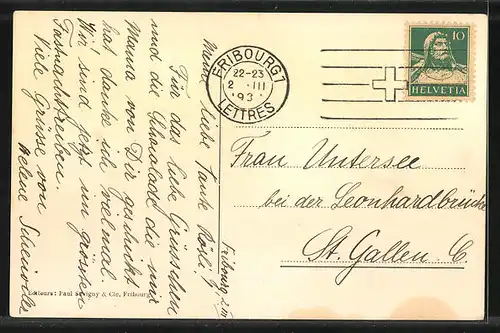 FRIBOURG 1
22-23
2 . III
.93.
LETTRES
10
HELVETIA
Meine liebe Tante Rösli!
Für das liebe Grüsschen
und die Schocolade die mir
Mama von Dir geschickt
hat danke ich vielmal.
Wir sind jetzt im grössten
Fastnachttreiben.
Viele Grüsse von
Helene
Fribourg
Frau Untersee
bei der Leonhardbrücke
St. Gallen. C.
Editeurs: Paul Savigny & Cie, Fribourg